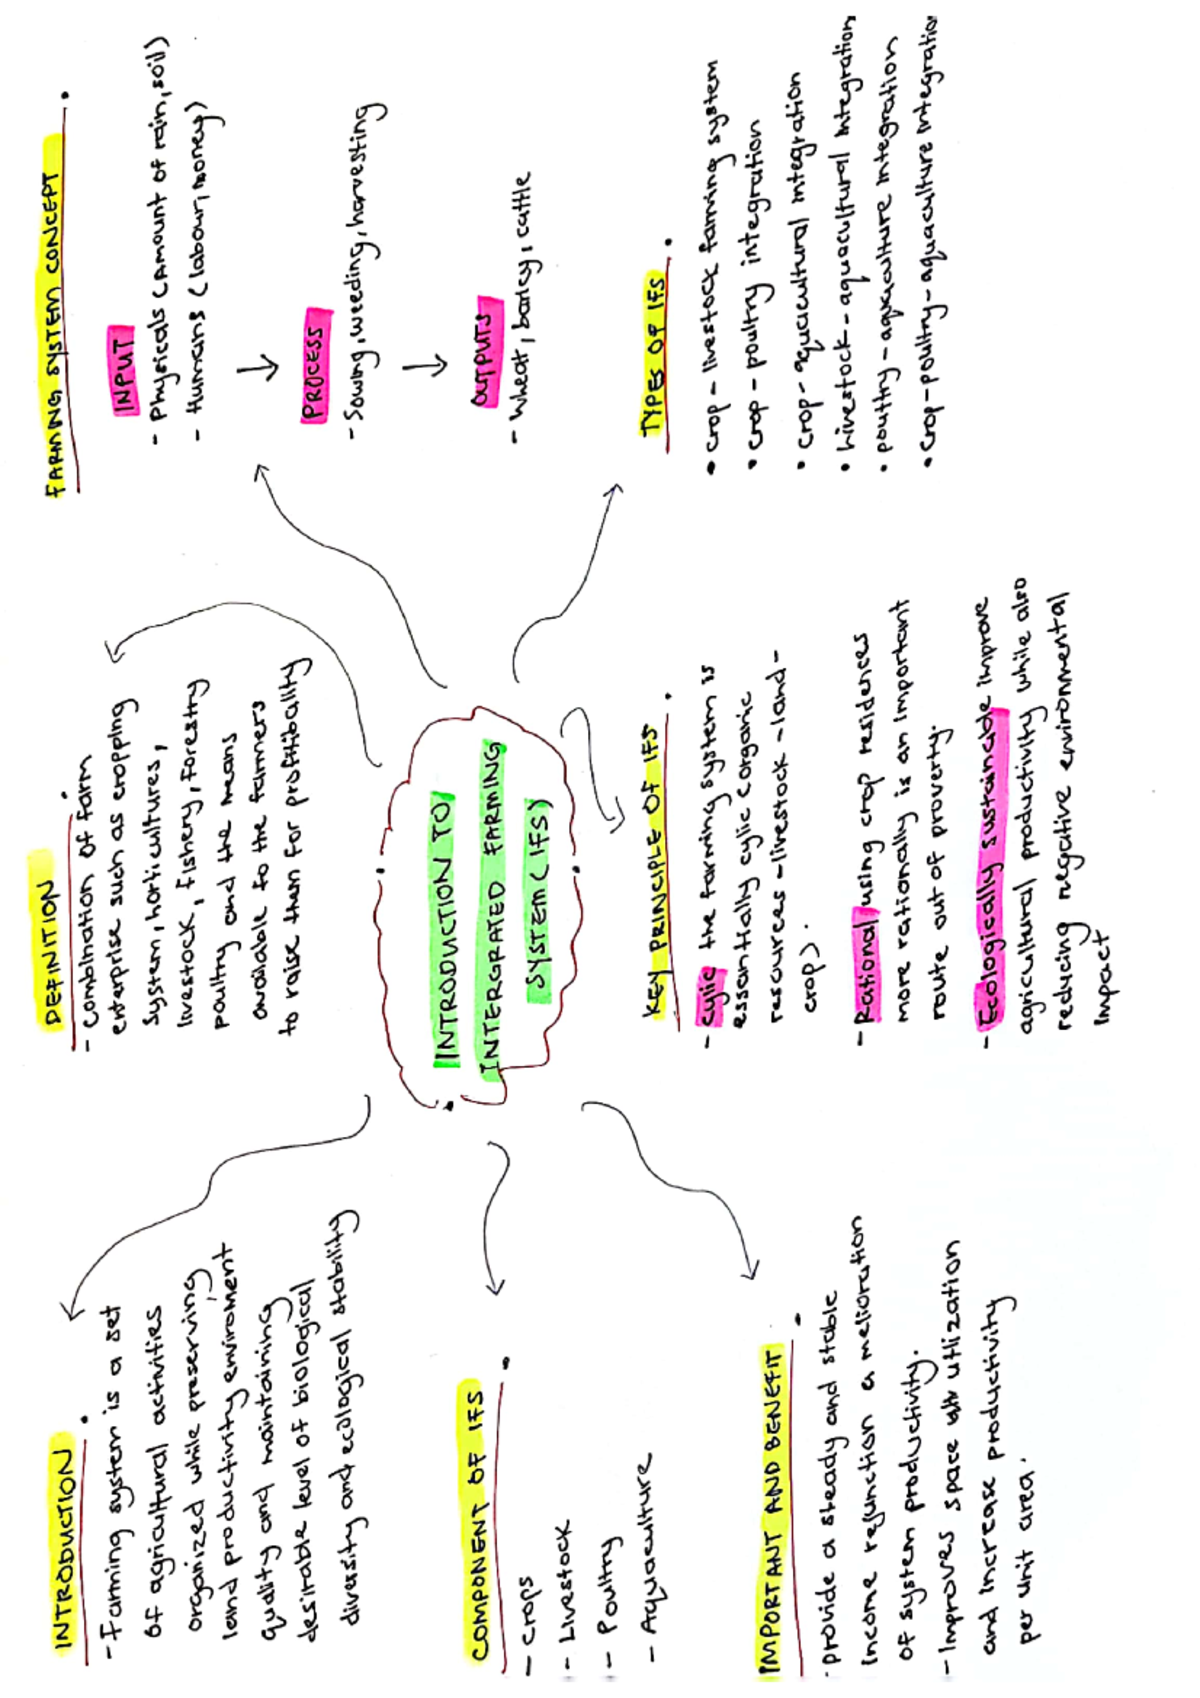 INTRODUCTION
- Farming system is a set
of agricultural activities
organized while preserving
land productivity, enviroment
quality and maintaining
desirable level of biological
diversity and ecological stability
DEFINITION
- Combination of farm
enterprise such as cropping
system, horticultures,
livestock, fishery, forestry
poultry and the means
available to the farmers
to raise them for profitibality
FARMING SYSTEM CONCEPT
INPUT
- Physicals (Amount of rain, soil)
- Humans (labour, money)
PROCESS
- Sowing, weeding, harvesting
OUTPUTS
- Wheat, barley, cattle
INTRODUCTION TO
INTERGRATED FARMING
SYSTEM (IFS)
COMPONENT OF IFS
- Crops
- Livestock
- Poultry
- Aquaculture
IMPORTANT AND BENEFIT
- provide a steady and stable
income rejunction a melioration
of system productivity.
- Improves space utlization
and increase productivity
per unit area.
KEY PRINCIPLE OF IFS
- Cylic the farming system is
essantially cylic (organic
resources - livestock - land -
crop).
- Rational using crop residences
more rationally is an important
route out of proverty.
- Ecologically sustainable improve
agricultural productivity while also
reducing negative environmental
impact
TYPES OF IFS
• crop - livestock faming system
• crop - poultry integration
• crop - aquacultural integration
• livestock - aquacultural integration
• poultry - aquaculture integration
• crop - poultry - aquaculture integration